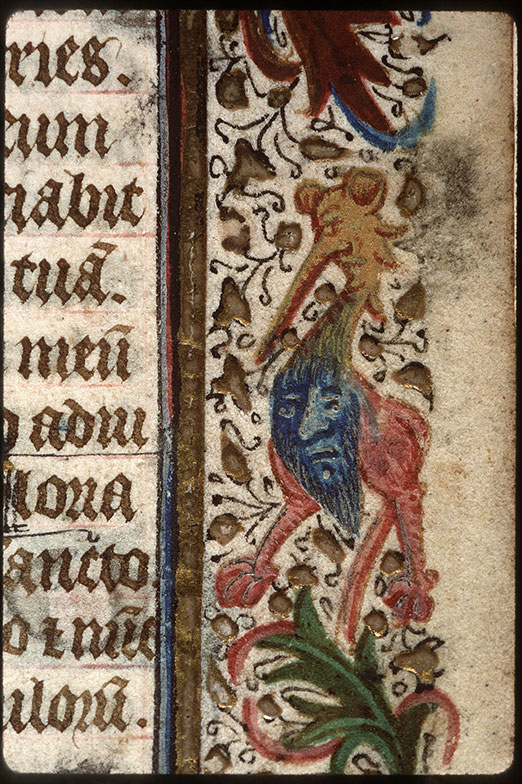 ries.
cum
ciabit
tuā.
meū
o adiu
loria
ancto.
o ⁊ nūc
ulorū.